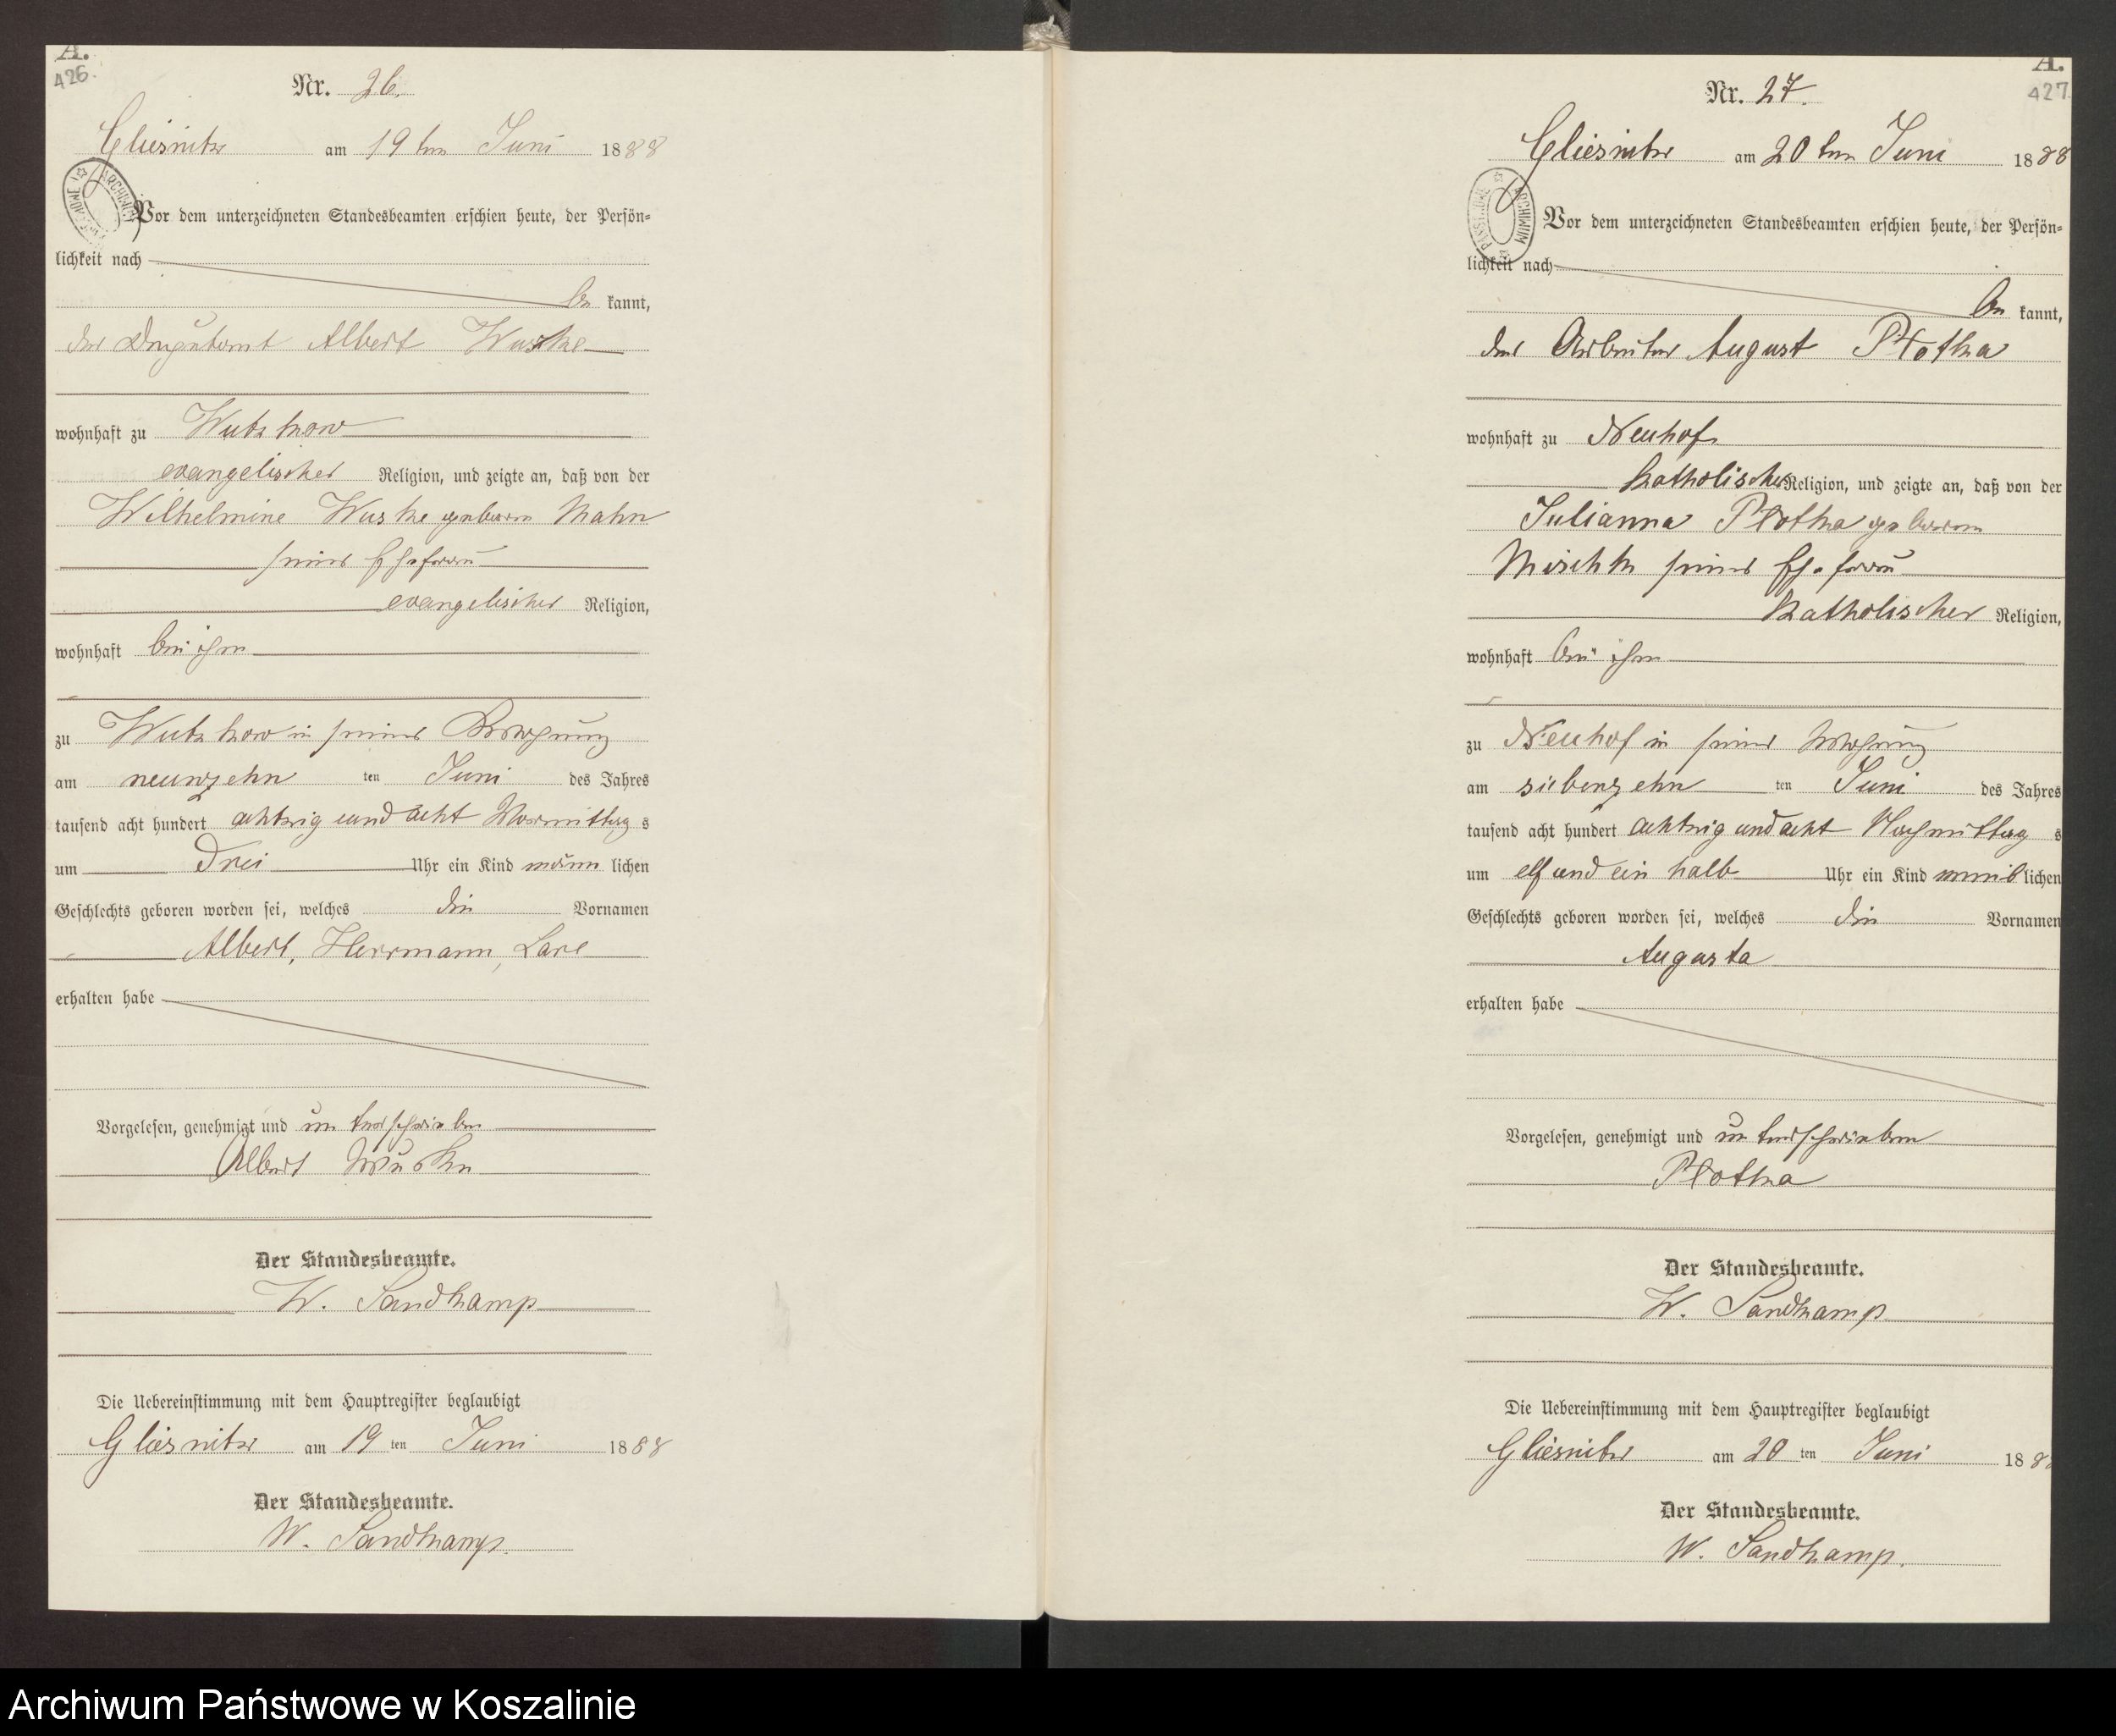 A.
426.
Nr. 26.
Gliesnitz am 19ten Juni 1888
Vor dem unterzeichneten Standesbeamten erschien heute, der Persön-
lichkeit nach
be kannt,
der Albert Wuske
wohnhaft zu Wutzkow
evangelischer Religion, und zeigte an, daß von der
Wilhelmine Wuske geboren Hahn
seiner Ehefrau
evangelischer Religion,
wohnhaft bei ihm
zu Wutzkow in seiner Wohnung
am neunzehn ten Juni des Jahres
tausend acht hundert achtzig und acht Vormittag s
um drei Uhr ein Kind männ lichen
Geschlechts geboren worden sei, welches die Vornamen
Albert, Herrmann, Carl
erhalten habe
Vorgelesen, genehmigt und unterschrieben
Albert Wuske
Der Standesbeamte.
W. Sandkamp
Die Uebereinstimmung mit dem Hauptregister beglaubigt
Gliesnitz am 19 ten Juni 1888
Der Standesbeamte.
W. Sandkamp.
A.
427
Nr. 27.
Gliesnitz am 20ten Juni 1888
ARCHIWUM
Vor dem unterzeichneten Standesbeamten erschien heute, der Persön-
lichkeit nach
be kannt,
der Arbeiter August Plotka
wohnhaft zu Neuhof
katholischer Religion, und zeigte an, daß von der
Julianna Plotka geboren
seiner Ehefrau
katholischer Religion,
wohnhaft bei ihm
zu Neuhof in seiner Wohnung
am siebenzehn ten Juni des Jahres
tausend acht hundert achtzig und acht Nachmittag s
um elf und ein halb Uhr ein Kind weib lichen
Geschlechts geboren worden sei, welches die Vornamen
Augusta
erhalten habe
Vorgelesen, genehmigt und unterschrieben
Plotka
Der Standesbeamte.
W. Sandkamp
Die Uebereinstimmung mit dem Hauptregister beglaubigt
Gliesnitz am 20 ten Juni 188
Der Standesbeamte.
W. Sandkamp.
Archiwum Państwowe w Koszalinie